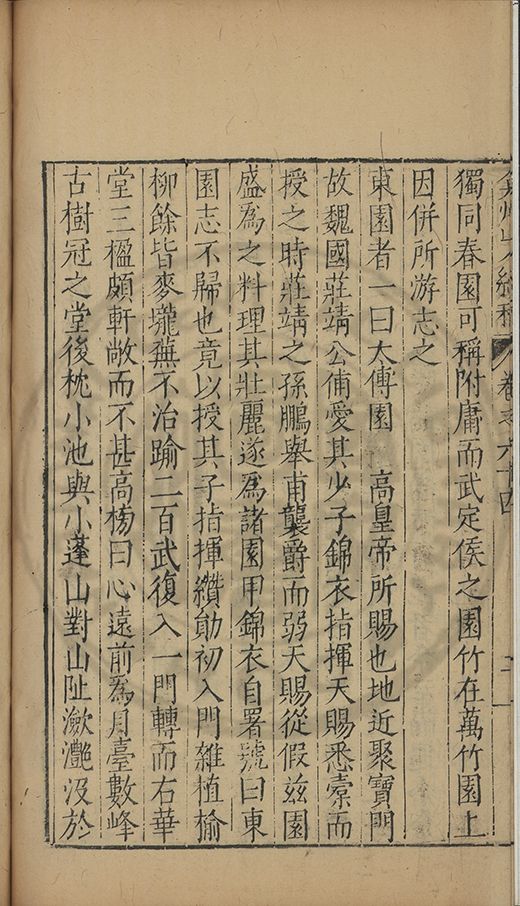 弇州山人續稿 卷之六十四 二
獨同春園可稱附庸而武定侯之園竹在萬竹園上
因併所游志之
東園者一曰太傅園 高皇帝所賜也地近聚寶門
故魏國莊靖公俌愛其少子錦衣指揮天賜悉橐而
授之時莊靖之孫鵬舉甫襲爵而弱天賜從假茲園
盛為之料理其壯麗遂為諸園甲錦衣自署號曰東
園志不歸也竟以授其子指揮纘勛初入門雜植榆
柳餘皆麥壠蕪不治踰二百武復入一門轉而右華
堂三楹頗軒敞而不甚高榜曰心遠前為月臺數峰
古樹冠之堂後枕小池與小蓬山對山址瀲灩沒於